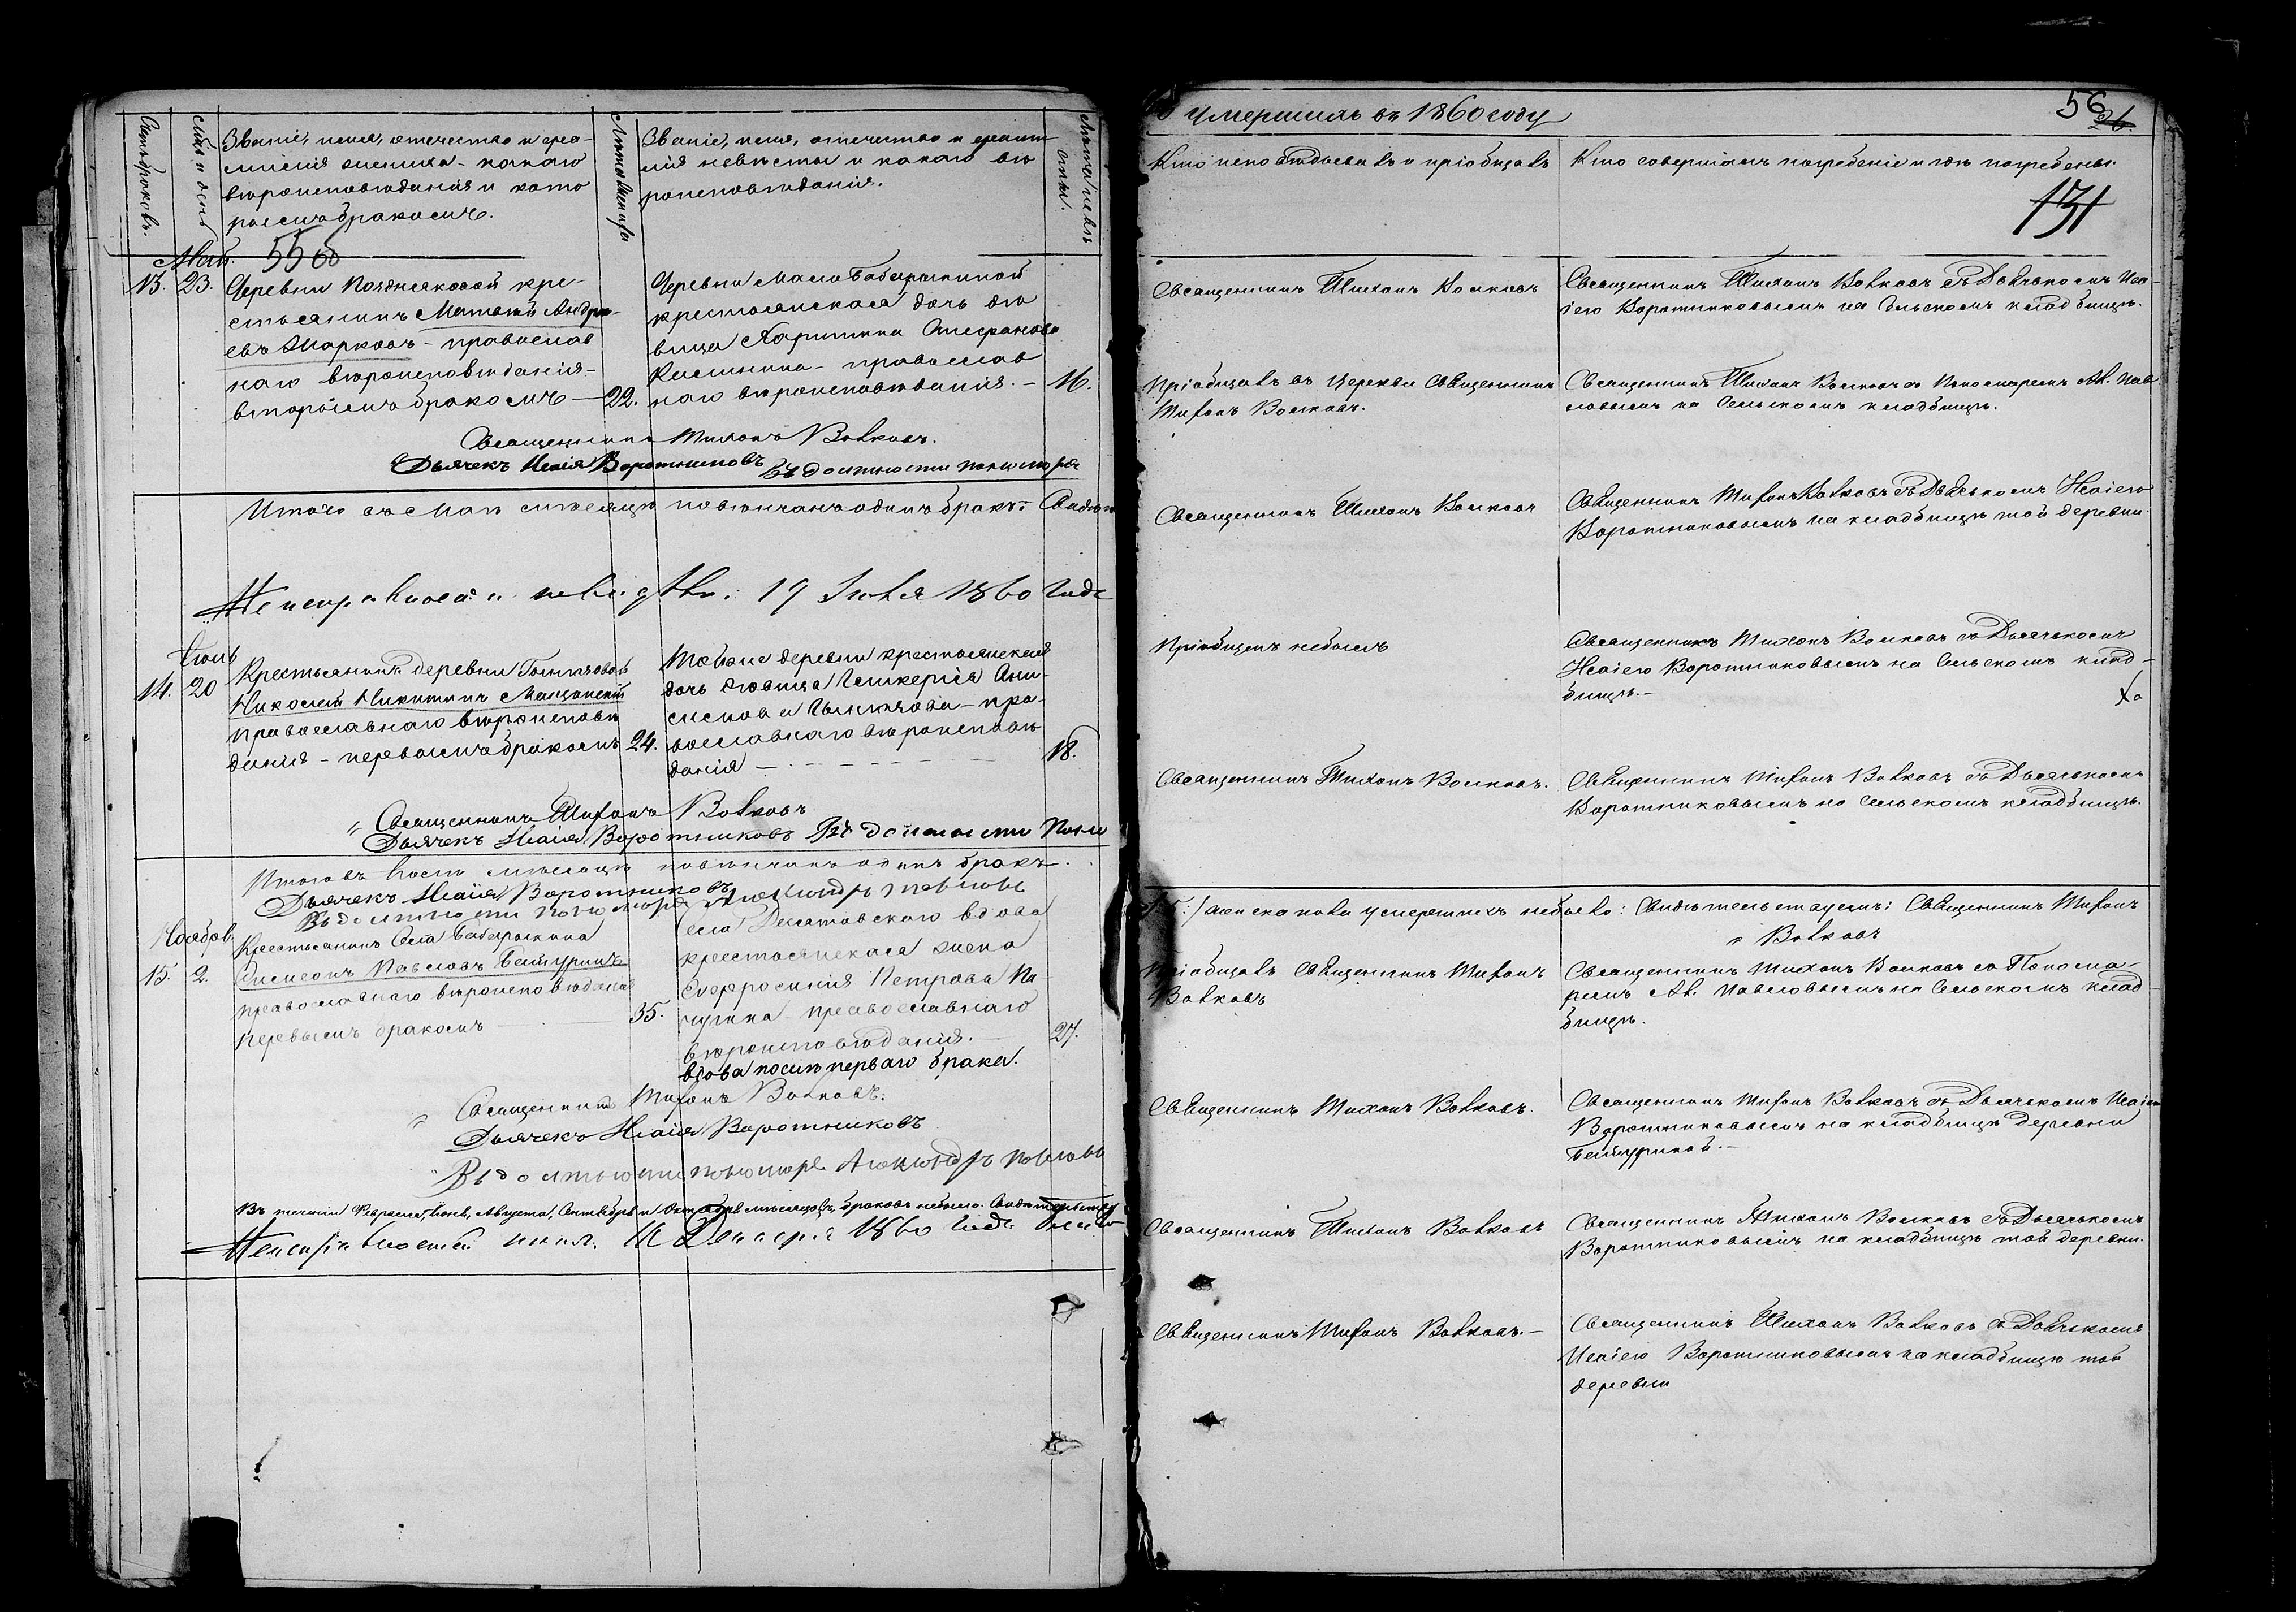 Счетъ браковъ.
Мѣс. и день
Званіе, имя, отечество и фа-
милія жениха - какого
вѣроисповѣданія и кото
рымъ бракомъ.
Лѣта жениха
Званіе, имя, отечество и фами
лія невѣсты и какого вѣ
роисповѣданія.
Лѣта невѣ
сты.
Май. 55 об
13. 23. Деревни Поздняковой кре-
стьянинъ Матвей Андре-
евъ Марковъ - православ
наго вѣроисповѣданія -
вторымъ бракомъ — 22.
Деревни Мало Бабарыкиной
крестьянская дочь дѣ
вица Харитина
православ
наго вѣроисповѣданія. — 16.
Священникъ Тихонъ Волковъ.
Дьячекъ Исаія Воротниковъ въ должности пономаря
Итого въ Маѣ мѣсяцѣ повѣнчанъ одинъ бракъ.
19 Июля 1860 года
Іюль
14. 20 Крестьянинъ деревни
Николай Никитинъ
православнаго вѣроисповѣ
данія - первымъ бракомъ 24.
Тойже деревни крестьянская
дочь дѣвица Гликерія Ани-
симова - пра-
вославнаго вѣроисповѣ
данія — 18.
Священникъ Тихонъ Волковъ
Дьячекъ Исаія Воротниковъ Въ должности Поно
Итого въ Іюлѣ мѣсяцѣ повѣнчанъ одинъ бракъ.
Дьячекъ Исаія Воротниковъ
Въ должности пономаря Александръ Павловъ
Ноябрь.
15. 2. Крестьянинъ Села Бабарыкина
Симеонъ Павловъ Батуринъ
православнаго вѣроисповѣданія
первымъ бракомъ — 35.
Села вдова
крестьянская жена
Евфросинія Петрова
православнаго
вѣроисповѣданія. — 27.
вдова послѣ перваго брака.
Священникъ Тихонъ Волковъ.
Дьячекъ Исаія Воротниковъ
Въ должности пономаря Александръ Павловъ
Въ теченіи Февраля, Іюня, Августа, Сентября и Октября мѣсяцовъ браковъ небыло.
Декабря 1860 года
умершихъ въ 1860 году
56
26.
Кто исповѣдывалъ и пріобщалъ
Кто совершалъ погребеніе и гдѣ погребены.
131
Священникъ Тихонъ Волковъ
Священникъ Тихонъ Волковъ съ Дьячькомъ Иса-
іею Воротниковымъ на Сельскомъ кладбищѣ.
Пріобщалъ въ церкви Священникъ
Тихонъ Волковъ.
Священникъ Тихонъ Волковъ съ Пономаремъ Ал. Пав
ловымъ на Сельскомъ кладбищѣ.
Священникъ Тихонъ Волковъ
Священникъ Тихонъ Волковъ съ Дьячькомъ Исаіею
Воротниковымъ на кладбищѣ той деревни.
Пріобщенъ небылъ
Священникъ Тихонъ Волковъ съ Дьячькомъ
Исаіею Воротниковымъ на Сельскомъ клад-
бищѣ. -
Священникъ Тихонъ Волковъ.
Священникъ Тихонъ Волковъ съ Дьячькомъ
Воротниковымъ на Сельскомъ кладбищѣ.
умершихъ небыло: Свидѣтельствуемъ: Священникъ Тихонъ
Волковъ
Пріобщалъ Священникъ Тихонъ
Волковъ
Священникъ Тихонъ Волковъ съ Понома-
ремъ Ал. Павловымъ на Сельскомъ клад
бищѣ.
Священникъ Тихонъ Волковъ.
Священникъ Тихонъ Волковъ съ Дьячькомъ Исаіею
Воротниковымъ на кладбищѣ деревни
Батуриной. -
Священникъ Тихонъ Волковъ
Священникъ Тихонъ Волковъ съ Дьячькомъ
Воротниковымъ на кладбищѣ той деревни.
Священникъ Тихонъ Волковъ. -
Священникъ Тихонъ Волковъ съ Дьячькомъ
Исаіею Воротниковымъ на кладбищѣ той
деревни